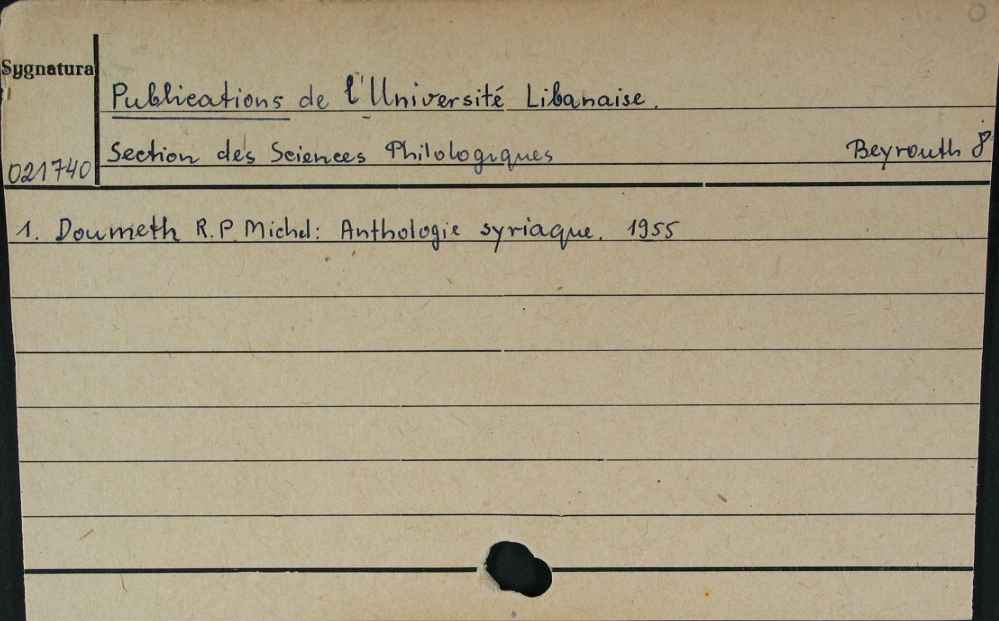 Sygnatura
Publications de l'Université Libanaise.
021740 Section des Sciences Philologiques Beyrouth 8°
1. Doumeth R.P. Michel: Anthologie syriaque. 1955